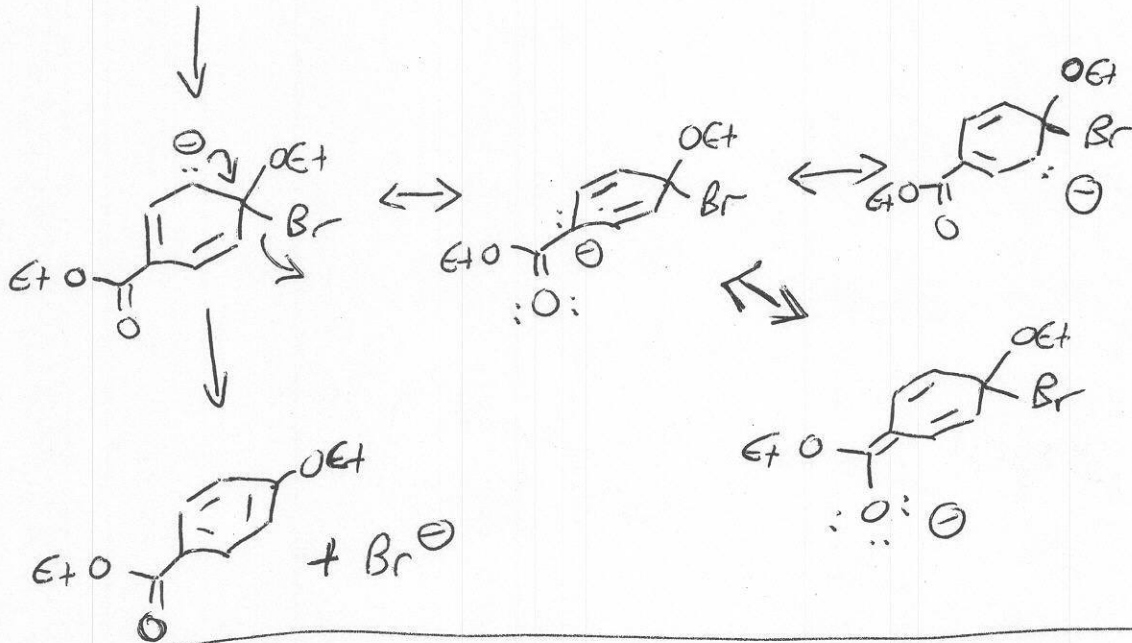 ⊖
OEt
Br
EtO
O
OEt
Br
EtO
⊖
:O:
OEt
Br
EtO
O
⊖
OEt
Br
EtO
:O: ⊖
OEt
EtO
O
+ Br⊖